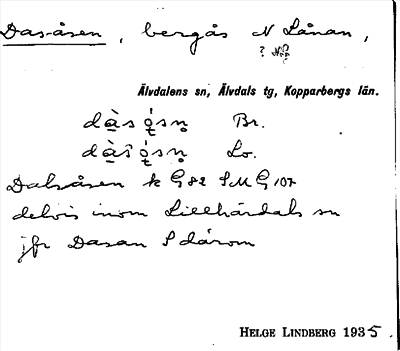 Dasåsen, bergås N Lånan,
Älvdalens sn, Älvdals tg, Kopparbergs län.
dàs ǫ́sn̥ Br.
dàs ǫ́sn̥ Lo.
Dalsåsen k G 82 SMG 107
delvis inom Lillhärdals sn
jfr Dasan S därom
HELGE LINDBERG 1935.